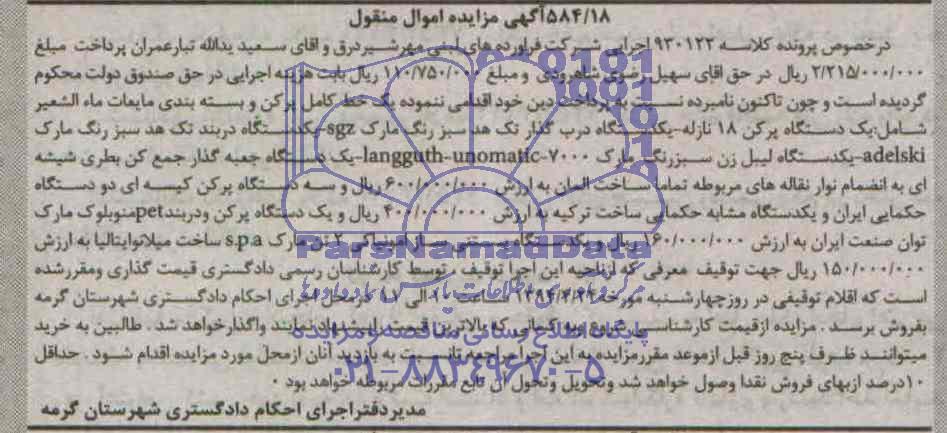 ۵۸۴/۱۸آگهی مزایده اموال منقول
درخصوص پرونده کلاسه ۹۳۰۱۲۲ اجرایی شرکت فراورده های لبنی مهرشیردرق و اقای سعید یدالله تبارعمران پرداخت مبلغ
۲/۲۱۵/۰۰۰/۰۰۰ ریال در حق اقای سهیل رضوی شاهرودی و مبلغ ۱۱۰/۷۵۰/۰۰۰ ریال بابت هزینه اجرایی در حق صندوق دولت محکوم
گردیده است و چون تاکنون نامبرده نسبت به پرداخت دین خود اقدامی ننموده یک خط کامل پرکن و بسته بندی مایعات ماء الشعیر
شامل:یک دستگاه پرکن ۱۸ نازله-یکدستگاه درب گذار تک هد سبز رنگ مارک sgz-یکدستگاه دربند تک هد سبز رنگ مارک
adelski-یکدستگاه لیبل زن سبزرنگ مارک langguth-unomatic-۷۰۰۰-یک دستگاه جعبه گذار جمع کن بطری شیشه
ای به انضمام نوار نقاله های مربوطه تماما ساخت المان به ارزش ۶۰۰/۰۰۰/۰۰۰ ریال و سه دستگاه پرکن کیسه ای دو دستگاه
حکمایی ایران و یکدستگاه مشابه حکمایی ساخت ترکیه به ارزش ۴۰۰/۰۰۰/۰۰۰ ریال و یک دستگاه پرکن ودربندpetمنوبلوک مارک
توان صنعت ایران به ارزش ۱۶۰/۰۰۰/۰۰۰ ریال و یکدستگاه بستنی ساز اتوماتیک ۲ زنه مارک s.p.a ساخت میلانوایتالیا به ارزش
۱۵۰/۰۰۰/۰۰۰ ریال جهت توقیف معرفی که ازناحیه این اجرا توقیف ، توسط کارشناسان رسمی دادگستری قیمت گذاری ومقررشده
است که اقلام توقیفی در روزچهارشنبه مورخه ساعت ۱۰الی ۱۱ درمحل اجرای احکام دادگستری شهرستان گرمه
بفروش برسد . مزایده ازقیمت کارشناسی شروع وبه کسانی که بالاترین قیمت راپیشنهاد نمایند واگذارخواهد شد . طالبین به خرید
میتوانند ظرف پنج روز قبل ازموعد مقررمزایده به این اجرا مراجعه تانسبت به بازدید آنان ازمحل مورد مزایده اقدام شود . حداقل
۱۰درصد ازبهای فروش نقدا وصول خواهد شد وتحویل وتحول آن تابع مقررات مربوطه خواهد بود .
مدیردفتراجرای احکام دادگستری شهرستان گرمه
ParsNamadData
پایگاه اطلاع رسانی مناقصه و مزایده
۰۲۱-۸۸۳۴۹۶۷۰-۵